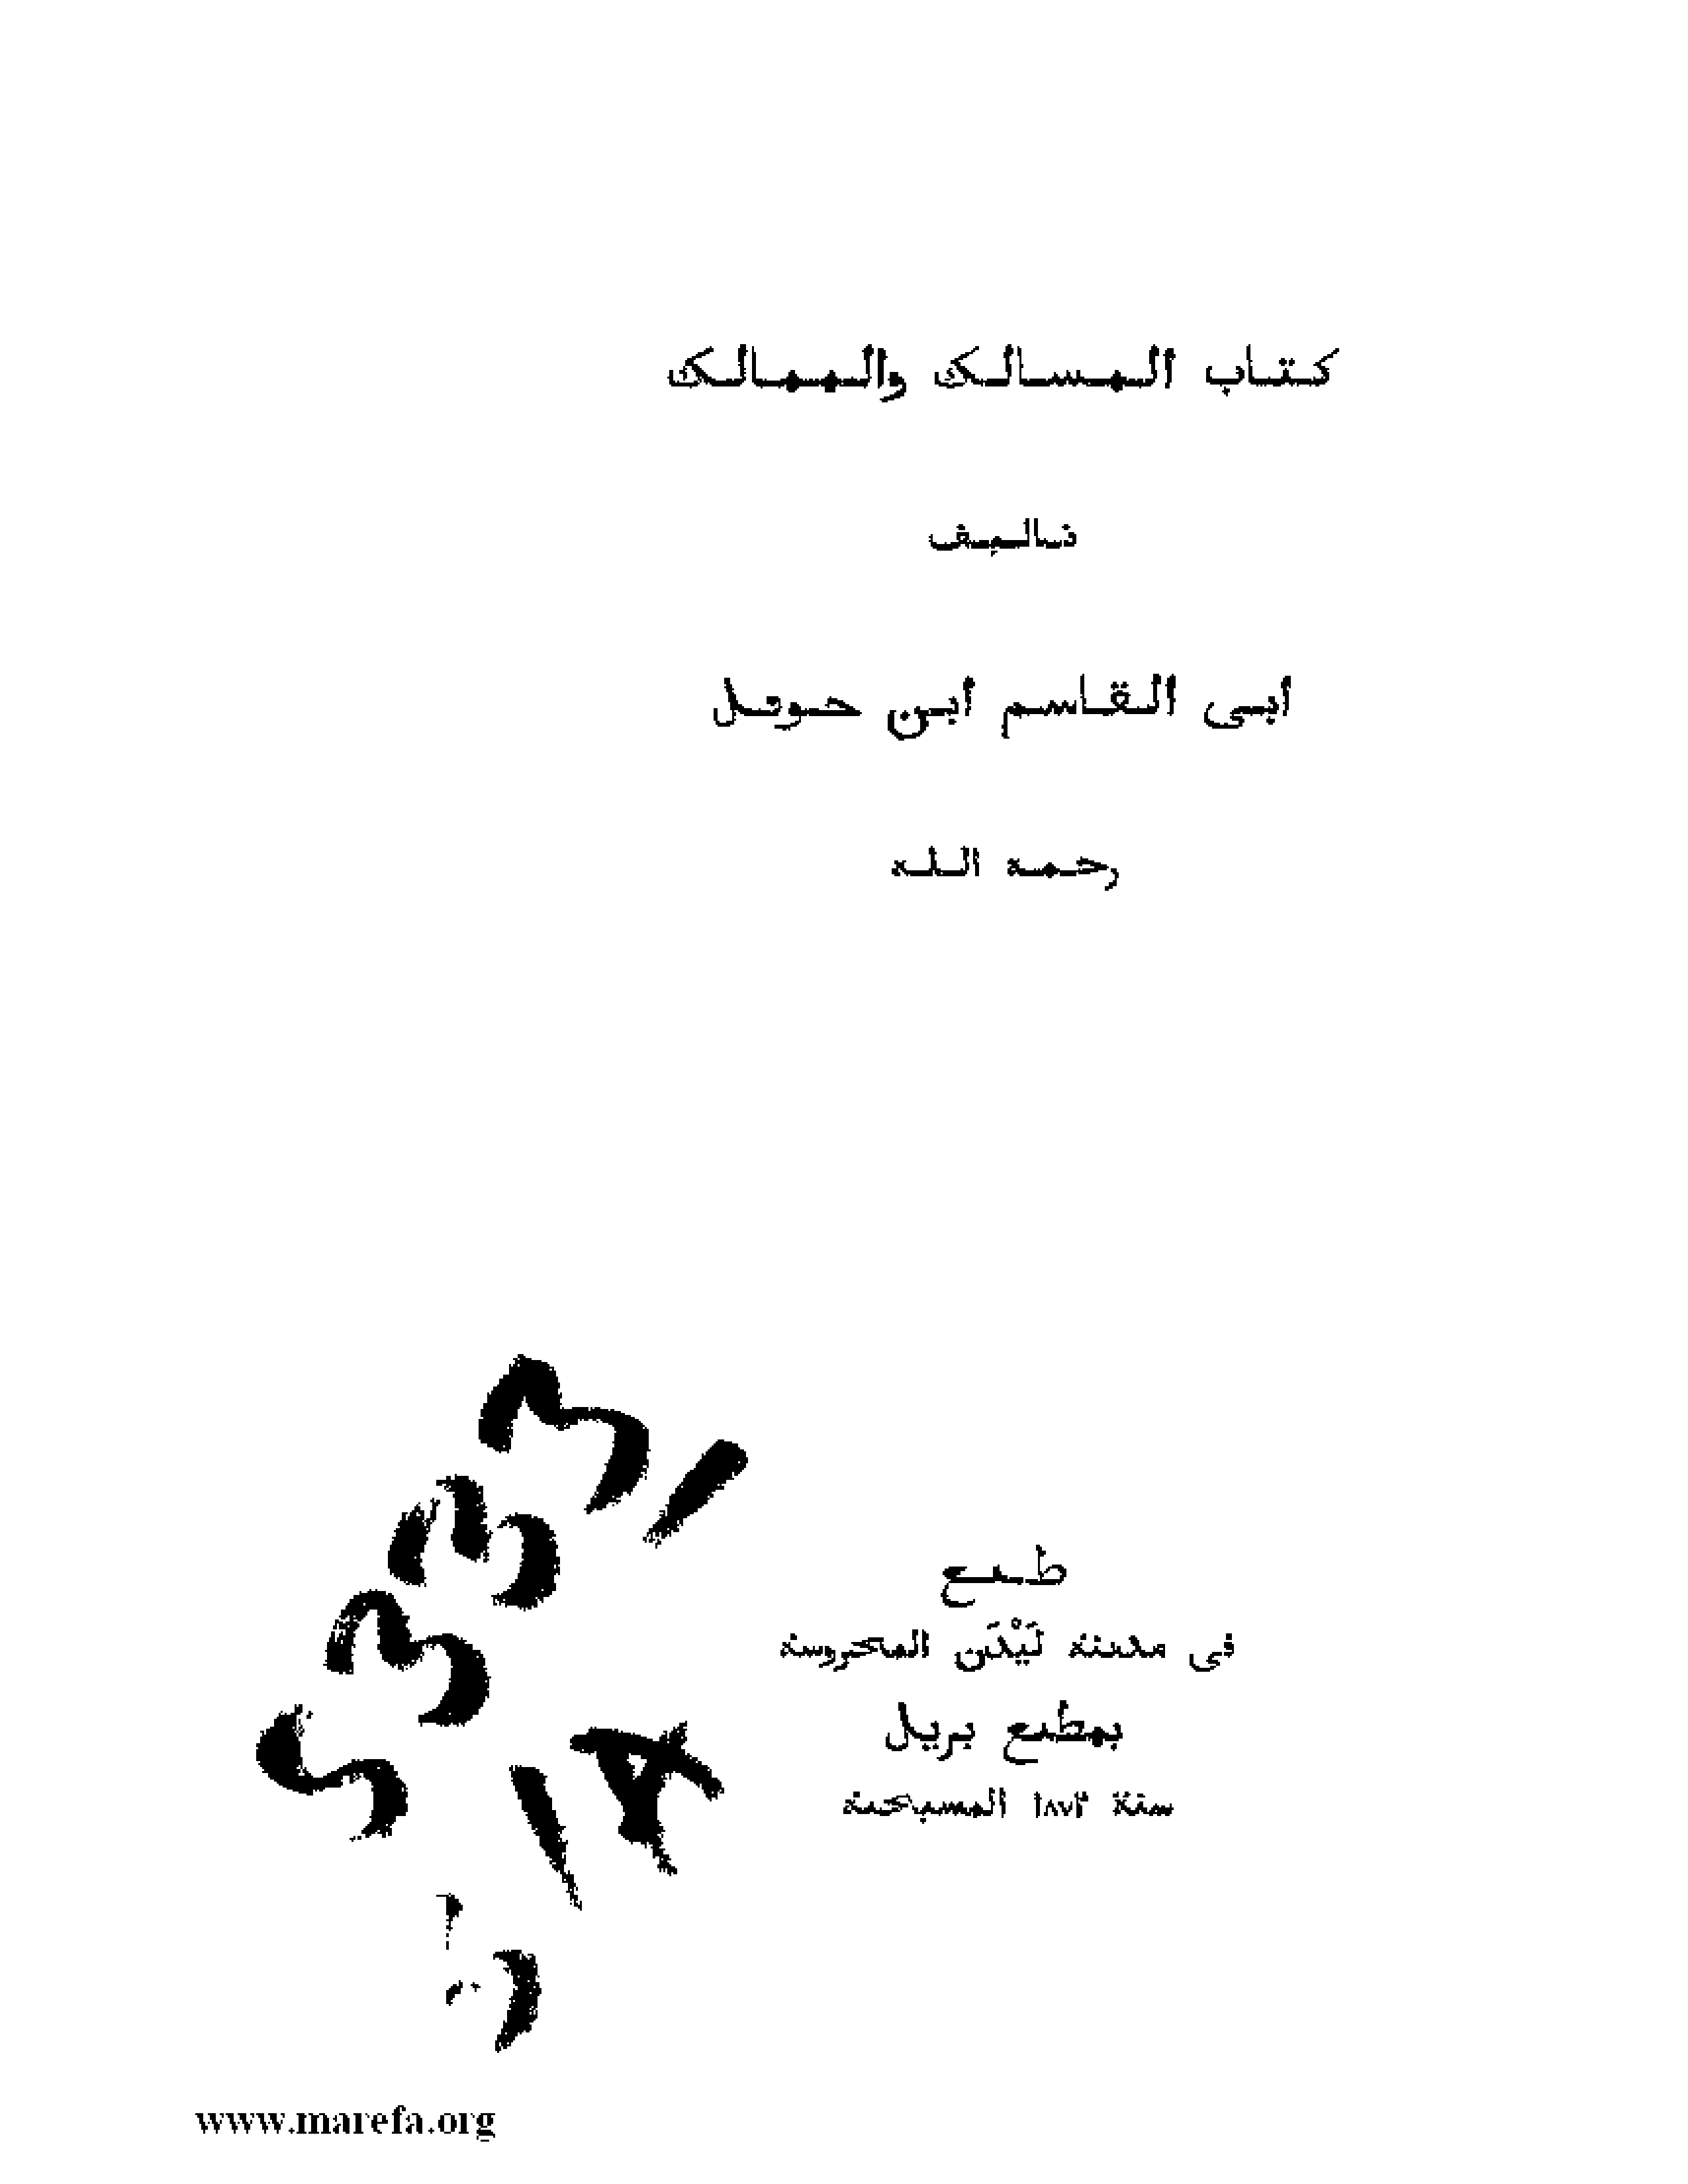 كتاب المسالك والممالك
تاليف
ابى القاسم ابن حوقل
رحمه الله
طبع
فى مدينة لَيْدَن المحروسة
بمطبع بريل
سنة ١٨٧٣ المسيحية
www.marefa.org